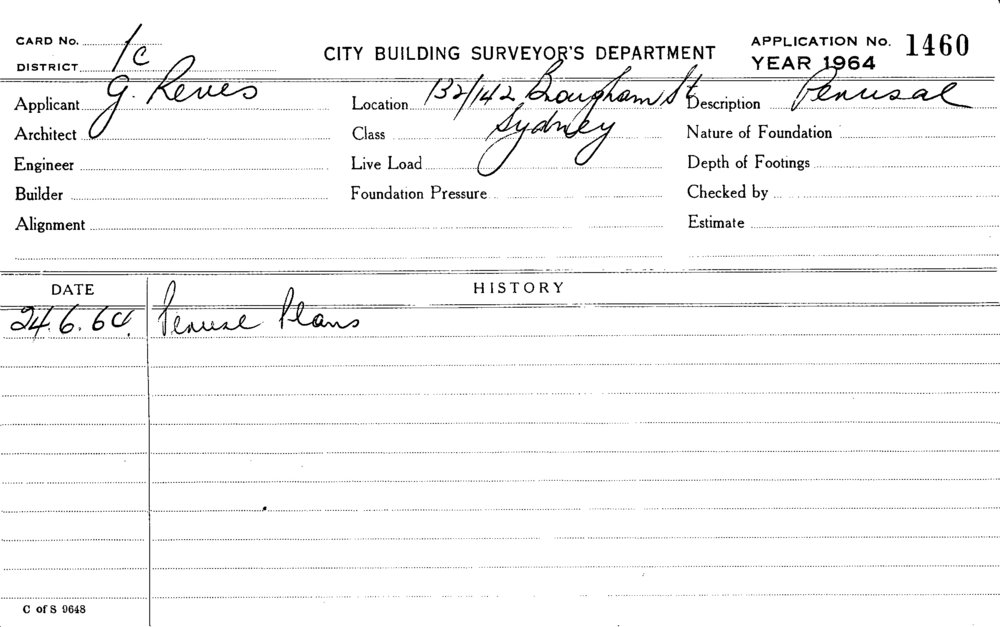 CARD No. 1c
DISTRICT
CITY BUILDING SURVEYOR'S DEPARTMENT
APPLICATION No. 1460
YEAR 1964
Applicant G. Reves
Location 132/142 Brougham St
Sydney
Description Perusal
Architect
Class
Nature of Foundation
Engineer
Live Load
Depth of Footings
Builder
Foundation Pressure
Checked by
Alignment
Estimate
DATE HISTORY
24.6.64. Peruse Plans
C of S 9648